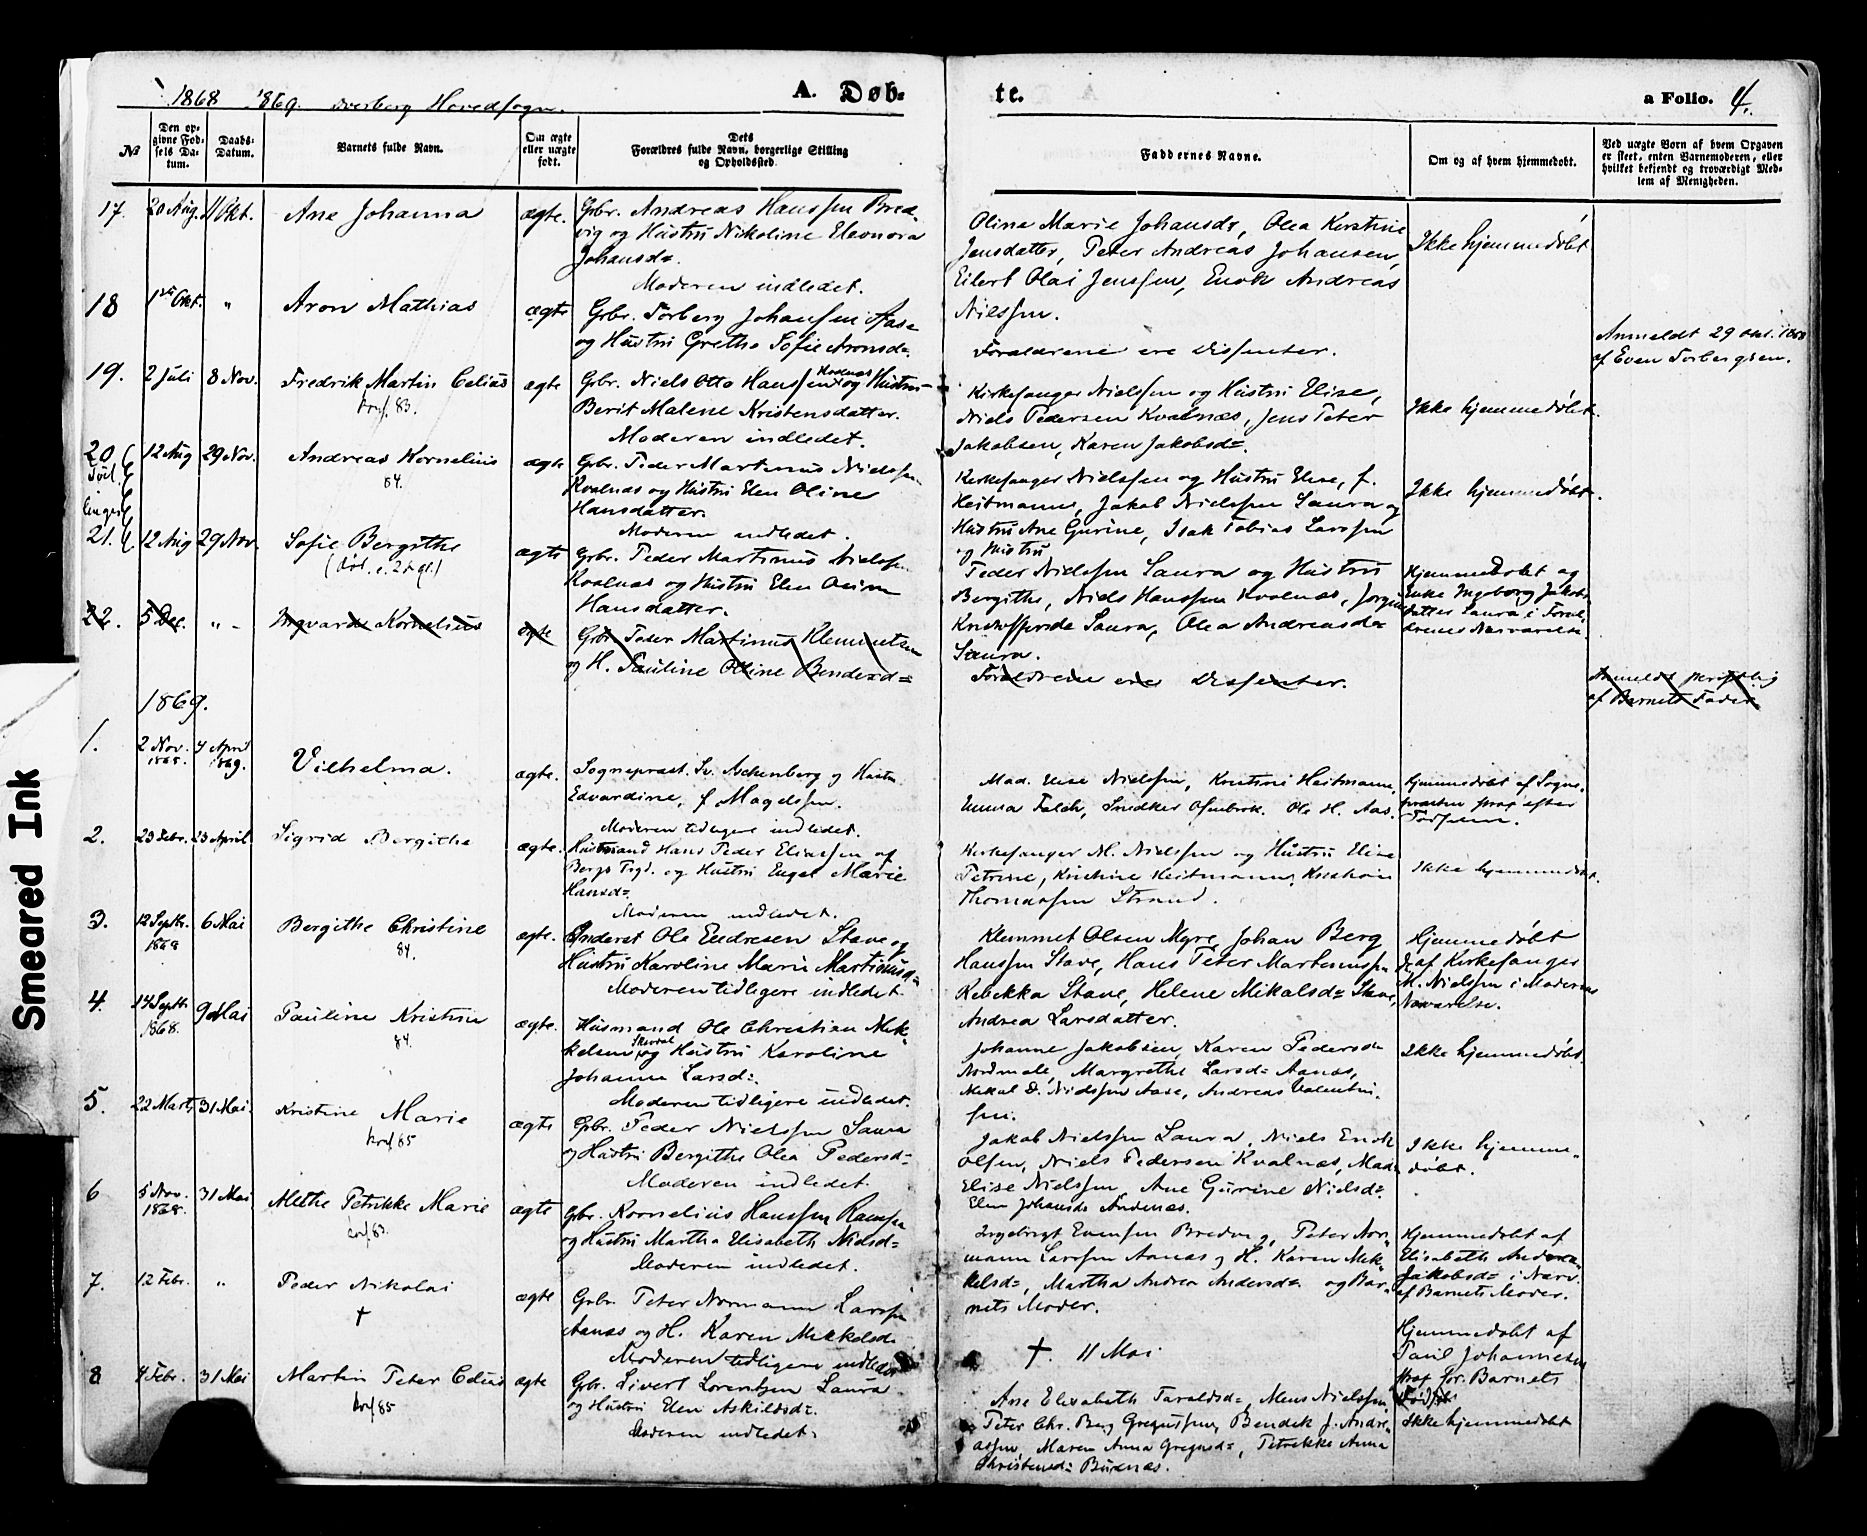 1868 1869. Dverberg Hovedsogn.
A. Døb-
te.
a Folio. 4.
№
Den op-
givne Fød-
sels Da-
tum.
Daabs-
Datum.
Barnets fulde Navn.
Om ægte
eller uægte
født.
Dets
Forældres fulde Navn, borgerlige Stilling
og Opholdssted.
Faddernes Navne.
Om og af hvem hjemmedøbt.
Ved uægte Børn af hvem Opgaven
er skeet, enten Barnemoderen, eller
hvilket bekjendt og troværdigt Med-
lem af Menigheden.
17. 20 Aug. 11 Okt. Ane Johanna ægte.
Gbr. Andreas Hanssen Bred-
vig og Hustru Nikoline Eleonora
Johansd=.
Moderen indledet.
Olina Marie Johansd=, Olea Kerstine
Jensdatter, Peter Andreas Johansen,
Eilert Olai Jenssen, Enok Andreas
Nilssen.
Ikke hjemmedøbt
18 1ste Okt. " Aron Mathias ægte
Gbr. Torberg Johanssen Aase
og Hustru Grethe Sofie Aronsd=
Forældrene ere Dissenter.
Anmeldt 29 okt. 1868
af Even Torbergsen.
19. 2 Juli 8 Nov. Fredrik Martin Celius
konf. 83.
ægte
Gbr. Niels Otto Hanssen og Hustru
Berit Malene Kristensdatter.
Moderen indledet.
Kirkesanger Nielssen og Hustru Elise,
Niels Pedersen Kvalnæs, Jens Peter
Jakobsen, Karen Jakobsd=.
Ikke hjemmedøbt.
20 12 Aug 29 Nov. Andreas Kornelius
84.
ægte
Gbr. Peder Martinus Nielssen
Kvalnæs og Hustru Elen Oline
Hansdatter.
Moderen indledet.
Kirkesanger Nielssen og Hustru Elise, f.
Heitmann, Jakob Nielssen Saura og
Hustru Ane Gurine, Isak Tobias Larssen
og Hustru
Ikke hjemmedøbt.
Tvil-
linger
21. 12 Aug 29 Nov. Sofie Bergithe
ægte
Gbr. Peder Martinus Nielssen
Kvalnæs og Hustru Elen Oline
Hansdatter.
Peder Nielssen Saura og Hustru
Bergithe, Niels Hanssen Kvalnæs, Jørgine
Kristoffersd= Saura, Olea Andreasd=
Saura.
Hjemmedøbt og
Enke Ingeborg Jakobs-
datter Saura i Foræl-
drenes Nærværelse.
22. 5 Dec. " - Ingvarda Kornelius ægte
Gbr. Peder Martinus Klemmetsen
og H. Pauline Oline Bendixd=
Forældrene ere Dissenter.
Anmeldt skriftlig
af Barnets Fader.
1869.
1. 2 Nov. 1868. 4 April 1869. Vilhelma. ægte.
Sognepræst. Sv. Aschenberg og Hustru
Edvardine, f Magelssen.
Moderen tidligere indledet.
Mad. Elise Nielssen, Kristine Heitmann,
Emma Falch, Snedker Ofenbrok. Ole H. Aas.
Hjemmedøbt af Sogne-
præsten strax efter
Fødselen.
2. 23 Febr. 23 April Sigrid Bergithe ægte.
Husmand Hans Peder Eliassen af
Bergs Prgd. og Hustru Engel Marie
Hansd=
Moderen indledet.
Kirkesanger M. Nielssen og Hustru Elise
Petrine, Kristine Heitmann, Kristian
Thomassen Strand.
Ikke hjemmedøbt.
3. 12 Septbr. 1868 6 Mai Bergithe Christine
84.
ægte.
Inderst Ole Endresen Stave og
Hustru Karoline Marie Martinusd=
Moderen tidligere indledet.
Klemmet Olsen Myre, Johan Berg
Hanssen Stave, Hans Peter Martinussen
Rebekka Stave, Helene Mikalsd= Stave,
Andrea Larsdatter.
Hjemmedøbt
af Kirkesanger
M. Nielssen i Moderens
Nærværelse.
4. 14 Septbr 1868. 9 Mai Pauline Kristine
84.
ægte.
Husmand Ole Christian Mik-
kelsen og Hustru Karoline
Johanna Larsd=.
Moderen tidligere indledet.
Johanne Jakobsen, Karen Pedersd=
Nordmele, Margrethe Larsd= Aanæs,
Mikal D. Nielssen Aase, Andreas Valentin-
sen.
Ikke hjemmedøbt
5. 22 Marts 31 Mai. Kristine Marie
konf 85
ægte
Gbr. Peder Nielssen Saura
og Hustru Bergithe Olea Pedersd=
Moderen indledet.
Jakob Nielssen Saura, Niels Enok
Olsen, Niels Pedersen Kvalnæs, Mad.
Elise Nielssen Ane Gurine Nielsd=
Elen Johansd= Andenæs.
Ikke hjemme-
døbt.
6 5 Nov. 1868. 31 Mai Alethe Petrikke Marie
konf 83.
ægte
Gbr. Kornelius Hanssen Ramsa
og Hustru Martha Elisabeth Nielsd=
Moderen indledet.
Ingebrigt Evensen Bredvig, Peter Nor-
mann Larssen Aanæs og H. Karen Mik-
kelsd=, Martha Andrea Andersd= og Bar-
nets Moder.
Hjemmedøbt af
Elisabeth Andrea
Jakobsd= i Nærv.
af Barnets Moder.
7. 12 Febr. " Peder Nikolai
†
ægte
Gbr. Peter Normann Larssen
Aanæs og H. Karen Mikkelsd=
Moderen tidligere indledet
†. 11 Mai
Hjemmedøbt af
Paul Johannesen
strax før Barnets
Død
8 4 Febr. 31 Mai Martin Peter Celius
konf 85
ægte
Gbr. Sivert Lorentzen Saura
og Hustru Elen Askildsd=.
Moderen indledet.
Ane Elisabeth Taraldsd=, Mons Nielssen,
Peter Chr. Berg Gregussen, Bendik J. Andre-
assen, Maren Anna Gregusd=, Petrikke Anna
Christensd= Buknæs.
Ikke hjemmedøbt
Smeared Ink